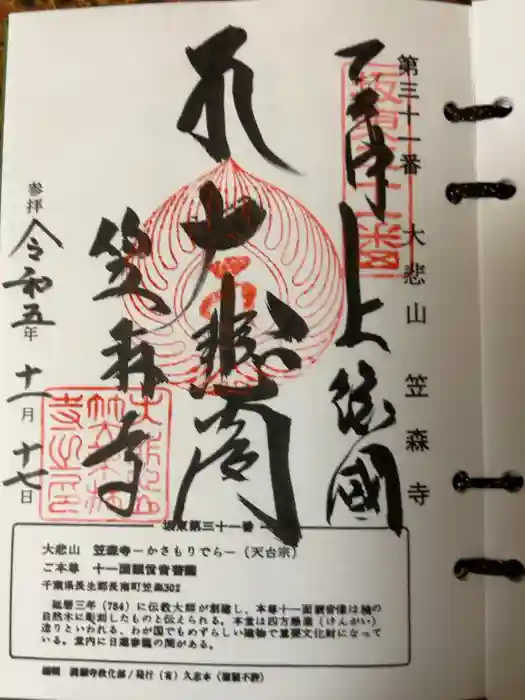 第三十一番 大悲山 笠森寺
奉拝 上総國
大悲閣
笠森寺
参拝 令和五年 十一月 十七日
坂東三十一番
坂東第三十一番
大悲山 笠森寺－かさもりでら－（天台宗）
ご本尊 十一面観世音菩薩
千葉県長生郡長南町笠森302
延暦三年（784）に伝教大師が創建し、本尊十一面観音像は楠の
自然木に彫刻したものと伝えられる。本堂は四方懸崖（けんがい）
造りといわれる、わが国でもめずらしい建物で重要文化財になって
いる。堂内に日蓮参籠の間がある。
編輯 満願寺教化部／発行（有）久志本（複製不許）